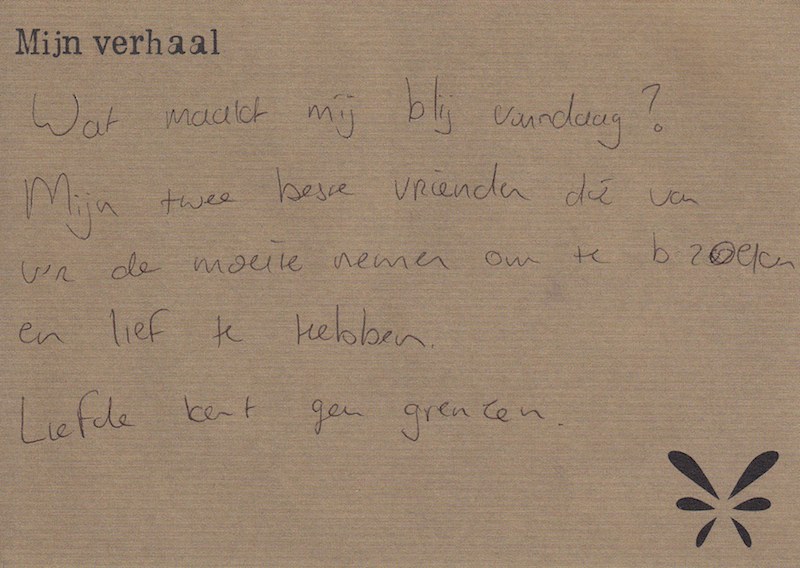 Mijn verhaal
Wat maakt mij blij vandaag?
Mijn twee beste vrienden die van
ver de moeite nemen om te bezoeken
en lief te hebben.
Liefde kent geen grenzen.